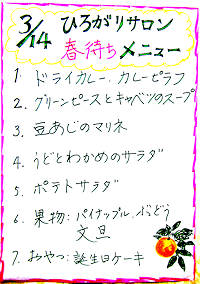 3/14 ひろがりサロン
春待ちメニュー
1. ドライカレー、カレーピラフ
2. グリーンピースとキャベツのスープ
3. 豆あじのマリネ
4. うどとわかめのサラダ
5. ポテトサラダ
6. 果物:パイナップル、ぶどう
文旦
7. おやつ:誕生日ケーキ